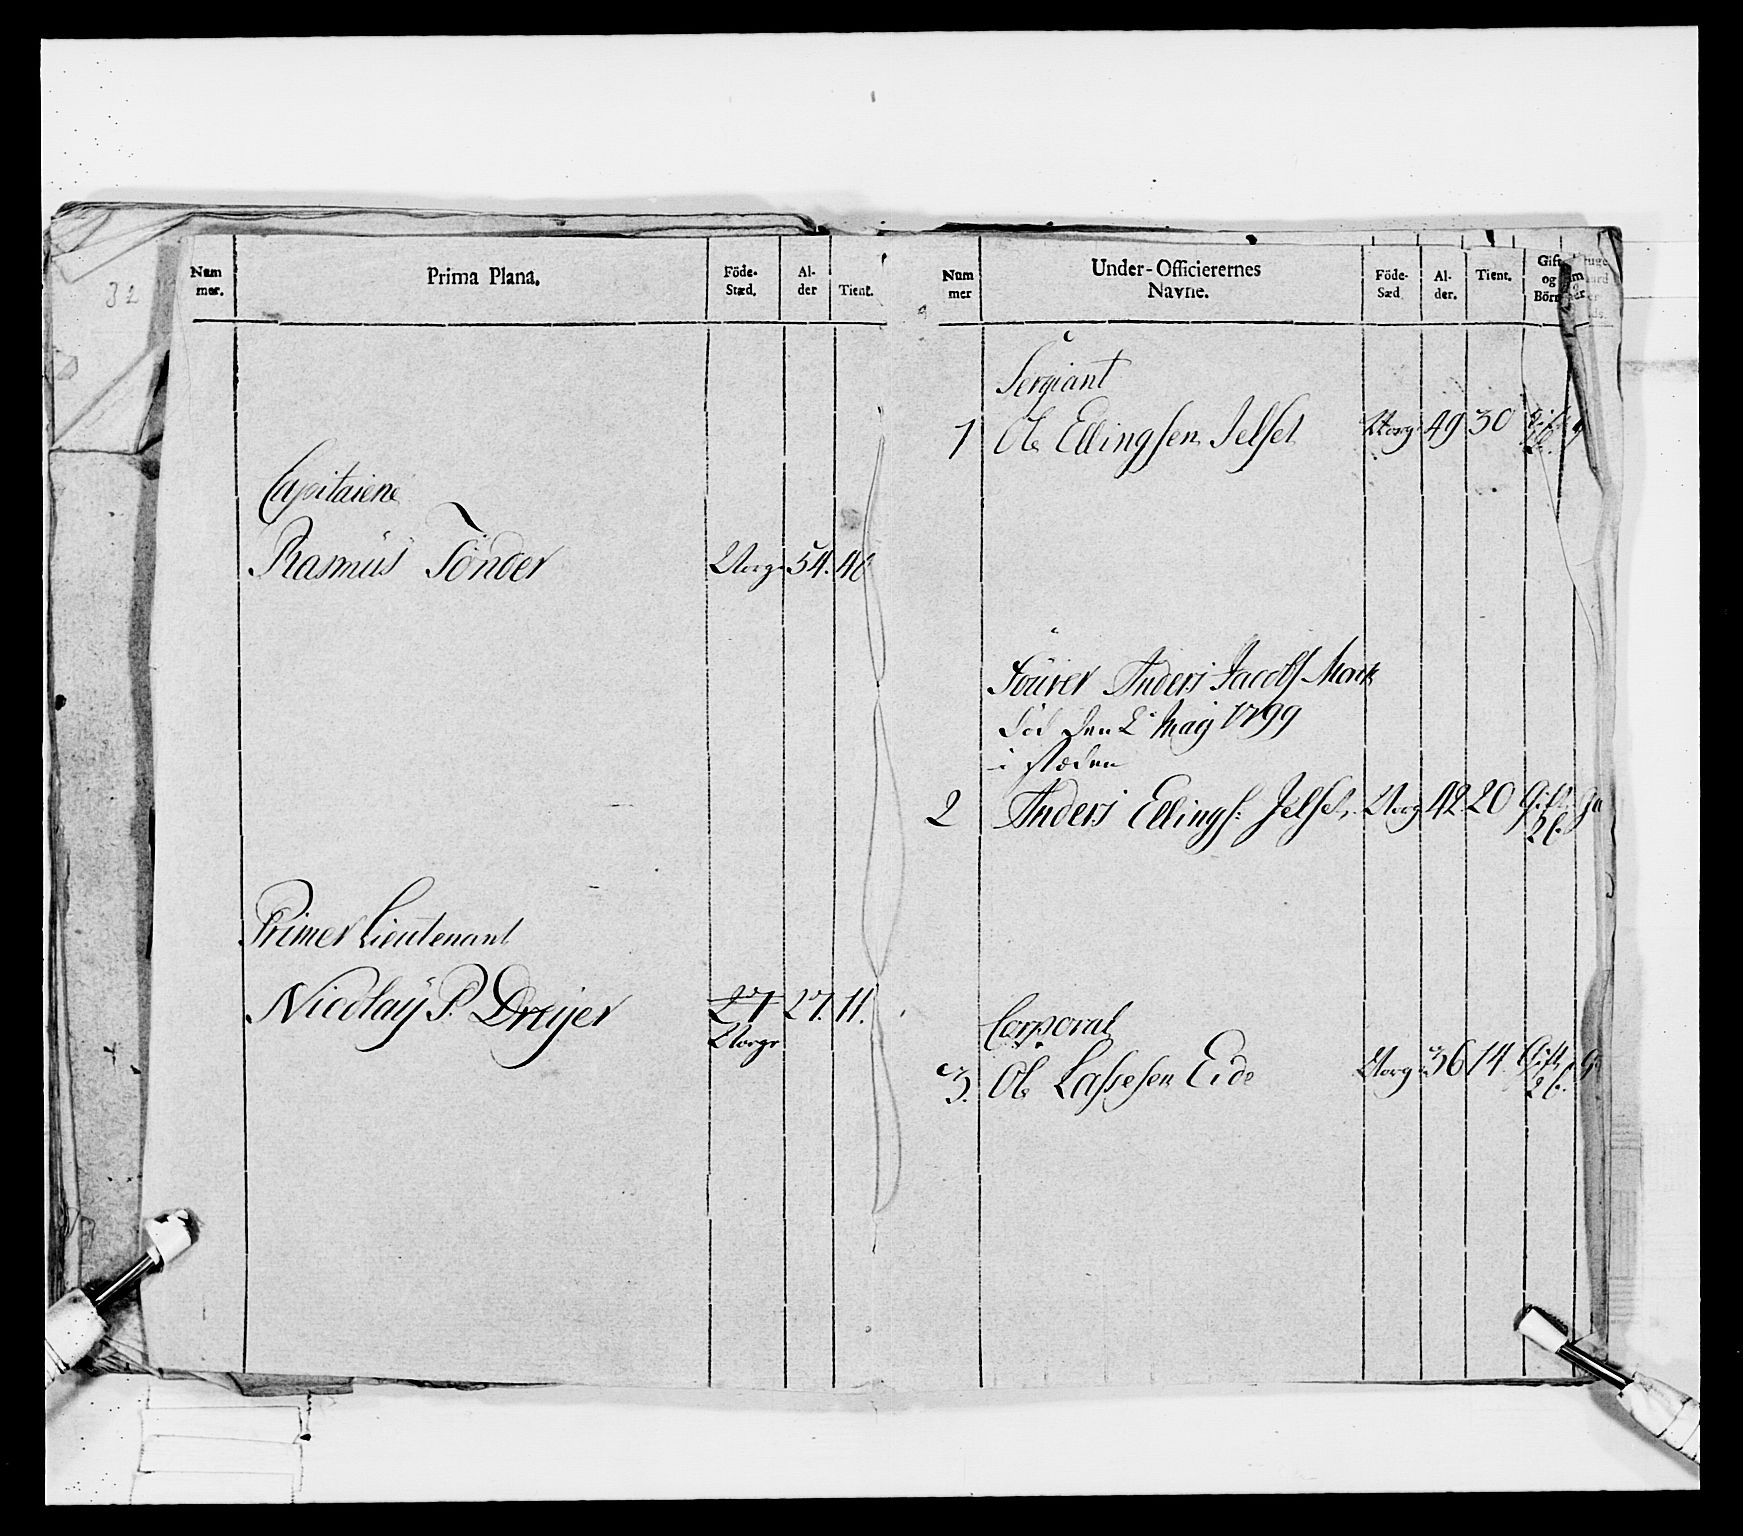 32
Num mer.
Prima Plana.
Föde-Stæd.
Al-der
Tient.
Capitaiene
Rasmus Tönder Norge 54. 40
Primer Lieutenant
Nicolay P. Dreyer 27 27. 11.
Norge
Num mer
Under-Officierernes Navne.
Föde-Sæd
Al-der.
Tient.
Gift og Börn
Sergiant
1 Ole Ellingsen Jelset Norge 49 30 Gift
Föürer Anders Jacobs Mork
död den 2 May 1799
i stæden
2 Anders Ellings: Jelset Norge 42 20 Gift
2 b.
Corporal
3. Ole Lassesen Eide Norge 36 14 Gift
2 b.